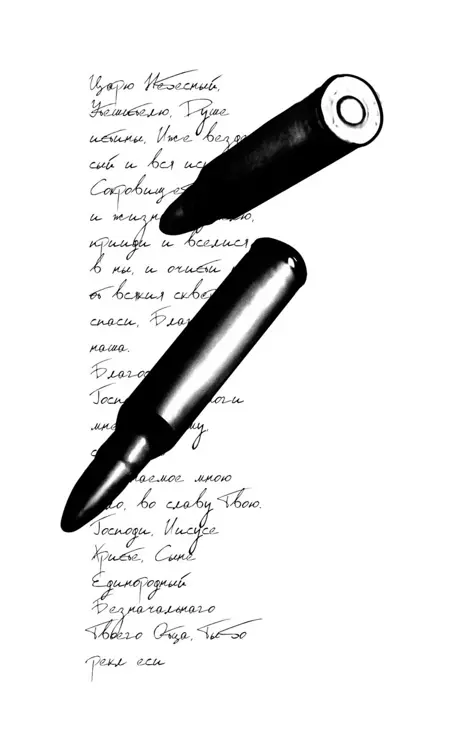 Царю Небесный,
Утешителю, Душе
истины, Иже везде
сый и вся ис
Сокровище
и жизн
прииди и вселися
в ны, и очисти
от всякия скве
спаси, Бла
наша.
Благос
Госп
мн
мною
во славу Твою.
Господи, Иисусе
Христе, Сыне
Единородный
Безначальнаго
Твоего Отца, Ты бо
рекл еси